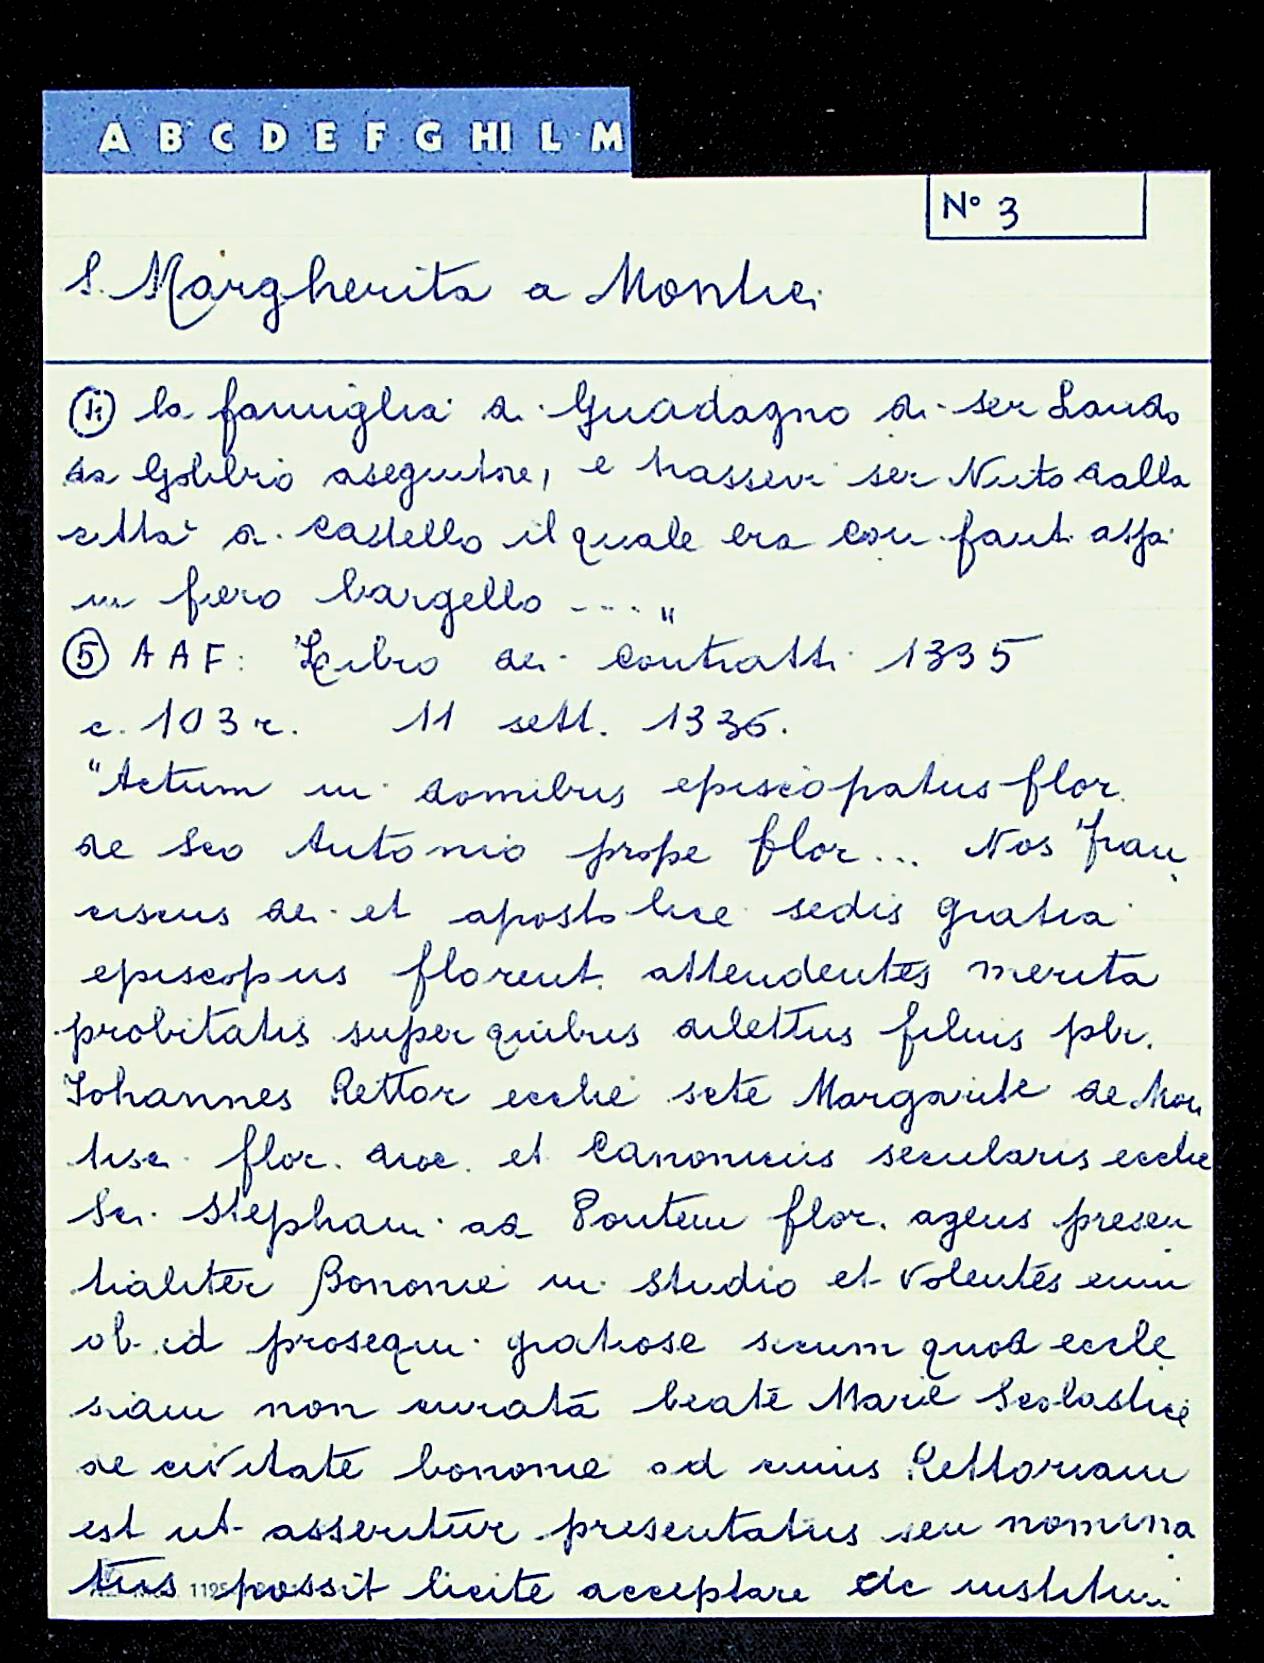 A B C D E F G HI L M
N° 3
S. Margherita a Montici
④ la famiglia di Guadagno di ser Lando
da Gobbio aseguitore, e trassevi ser Nuto dalla
città di Castello il quale era con fanti assai
un fiero bargello .... "
⑤ A A F: Libro dei contratti 1335
c. 103 r. 11 sett. 1336.
"Actum in domibus episcopatus flor.
de Sco Antonio prope flor... Nos Fran
ciscus dei et apostolice sedis gratia
episcopus florent. attendentes merita
probitatis super quibus dilettus filius pbr.
Iohannes Rettor ecclie scte Margarite de Mon
tisci flor. dioc. et Canonicus secularis ecclie
Sci Stephani ad Pontem flor. agens presen
tialiter Bononie in studio et volentes eum
ob id prosequi gratiose secum quod eccle
siam non curatā beate Marie Scolastice
de civitate bononie ad cuius Rettoriam
est ut asseritur presentatus seu nomina
tus possit licite acceptare ac institui